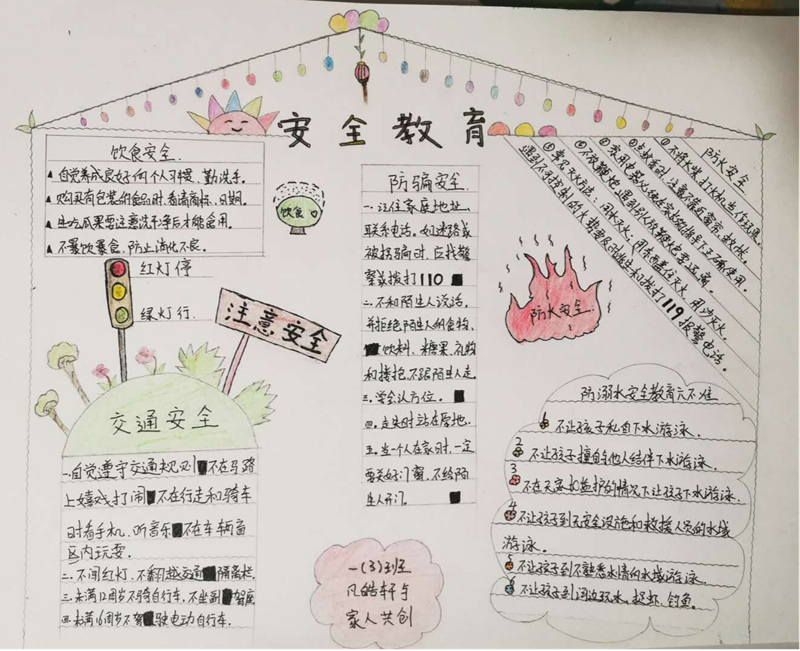 安全教育
饮食安全
▲自觉养成良好的个人习惯,勤洗手。
▲购买有包装的食品时,看清商标、日期。
▲生吃瓜果要注意洗净后才能食用。
▲不暴饮暴食,防止消化不良。
饮食
红灯停
绿灯行
注意安全
交通安全
一.自觉遵守交通规则 不在马路
上嬉戏打闹 不在行走和骑车
时看手机、听音乐 不在车辆盲
区内玩耍.
二.不闯红灯、不翻越交通 隔离栏.
三.未满12周岁不骑自行车,不坐副 驾座
四.未满16周岁不驾 驶电动自行车.
防骗安全
一.记住家庭地址、
联系电话。如迷路或
被拐骗时,应找警
察或拨打110
二.不和陌生人说话,
并拒绝陌生人的食物、
饮料、糖果、礼物
和搂抱,不跟陌生人走
三.学会认方位。
四.走失时站在原地.
五.当一个人在家时,一定
要关好门窗,不给陌
生人开门.
一(3)班
凡皓轩与
家人共创
防火安全
①不将火柴、打火机当作玩具.
不放鞭炮
遇到不可控制的火势要及时逃生和拨打119报警电话。
防火安全
防溺水安全教育六不准
1 不让孩子私自下水游泳.
2 不让孩子擅自与他人结伴下水游泳.
3 不在无家长监护的情况下让孩子下水游泳.
4 不让孩子到无安全设施和救援人员的水域
游泳.
5 不让孩子到不熟悉水情的水域游泳.
6 不让孩子到河边玩水、捉虾、钓鱼.